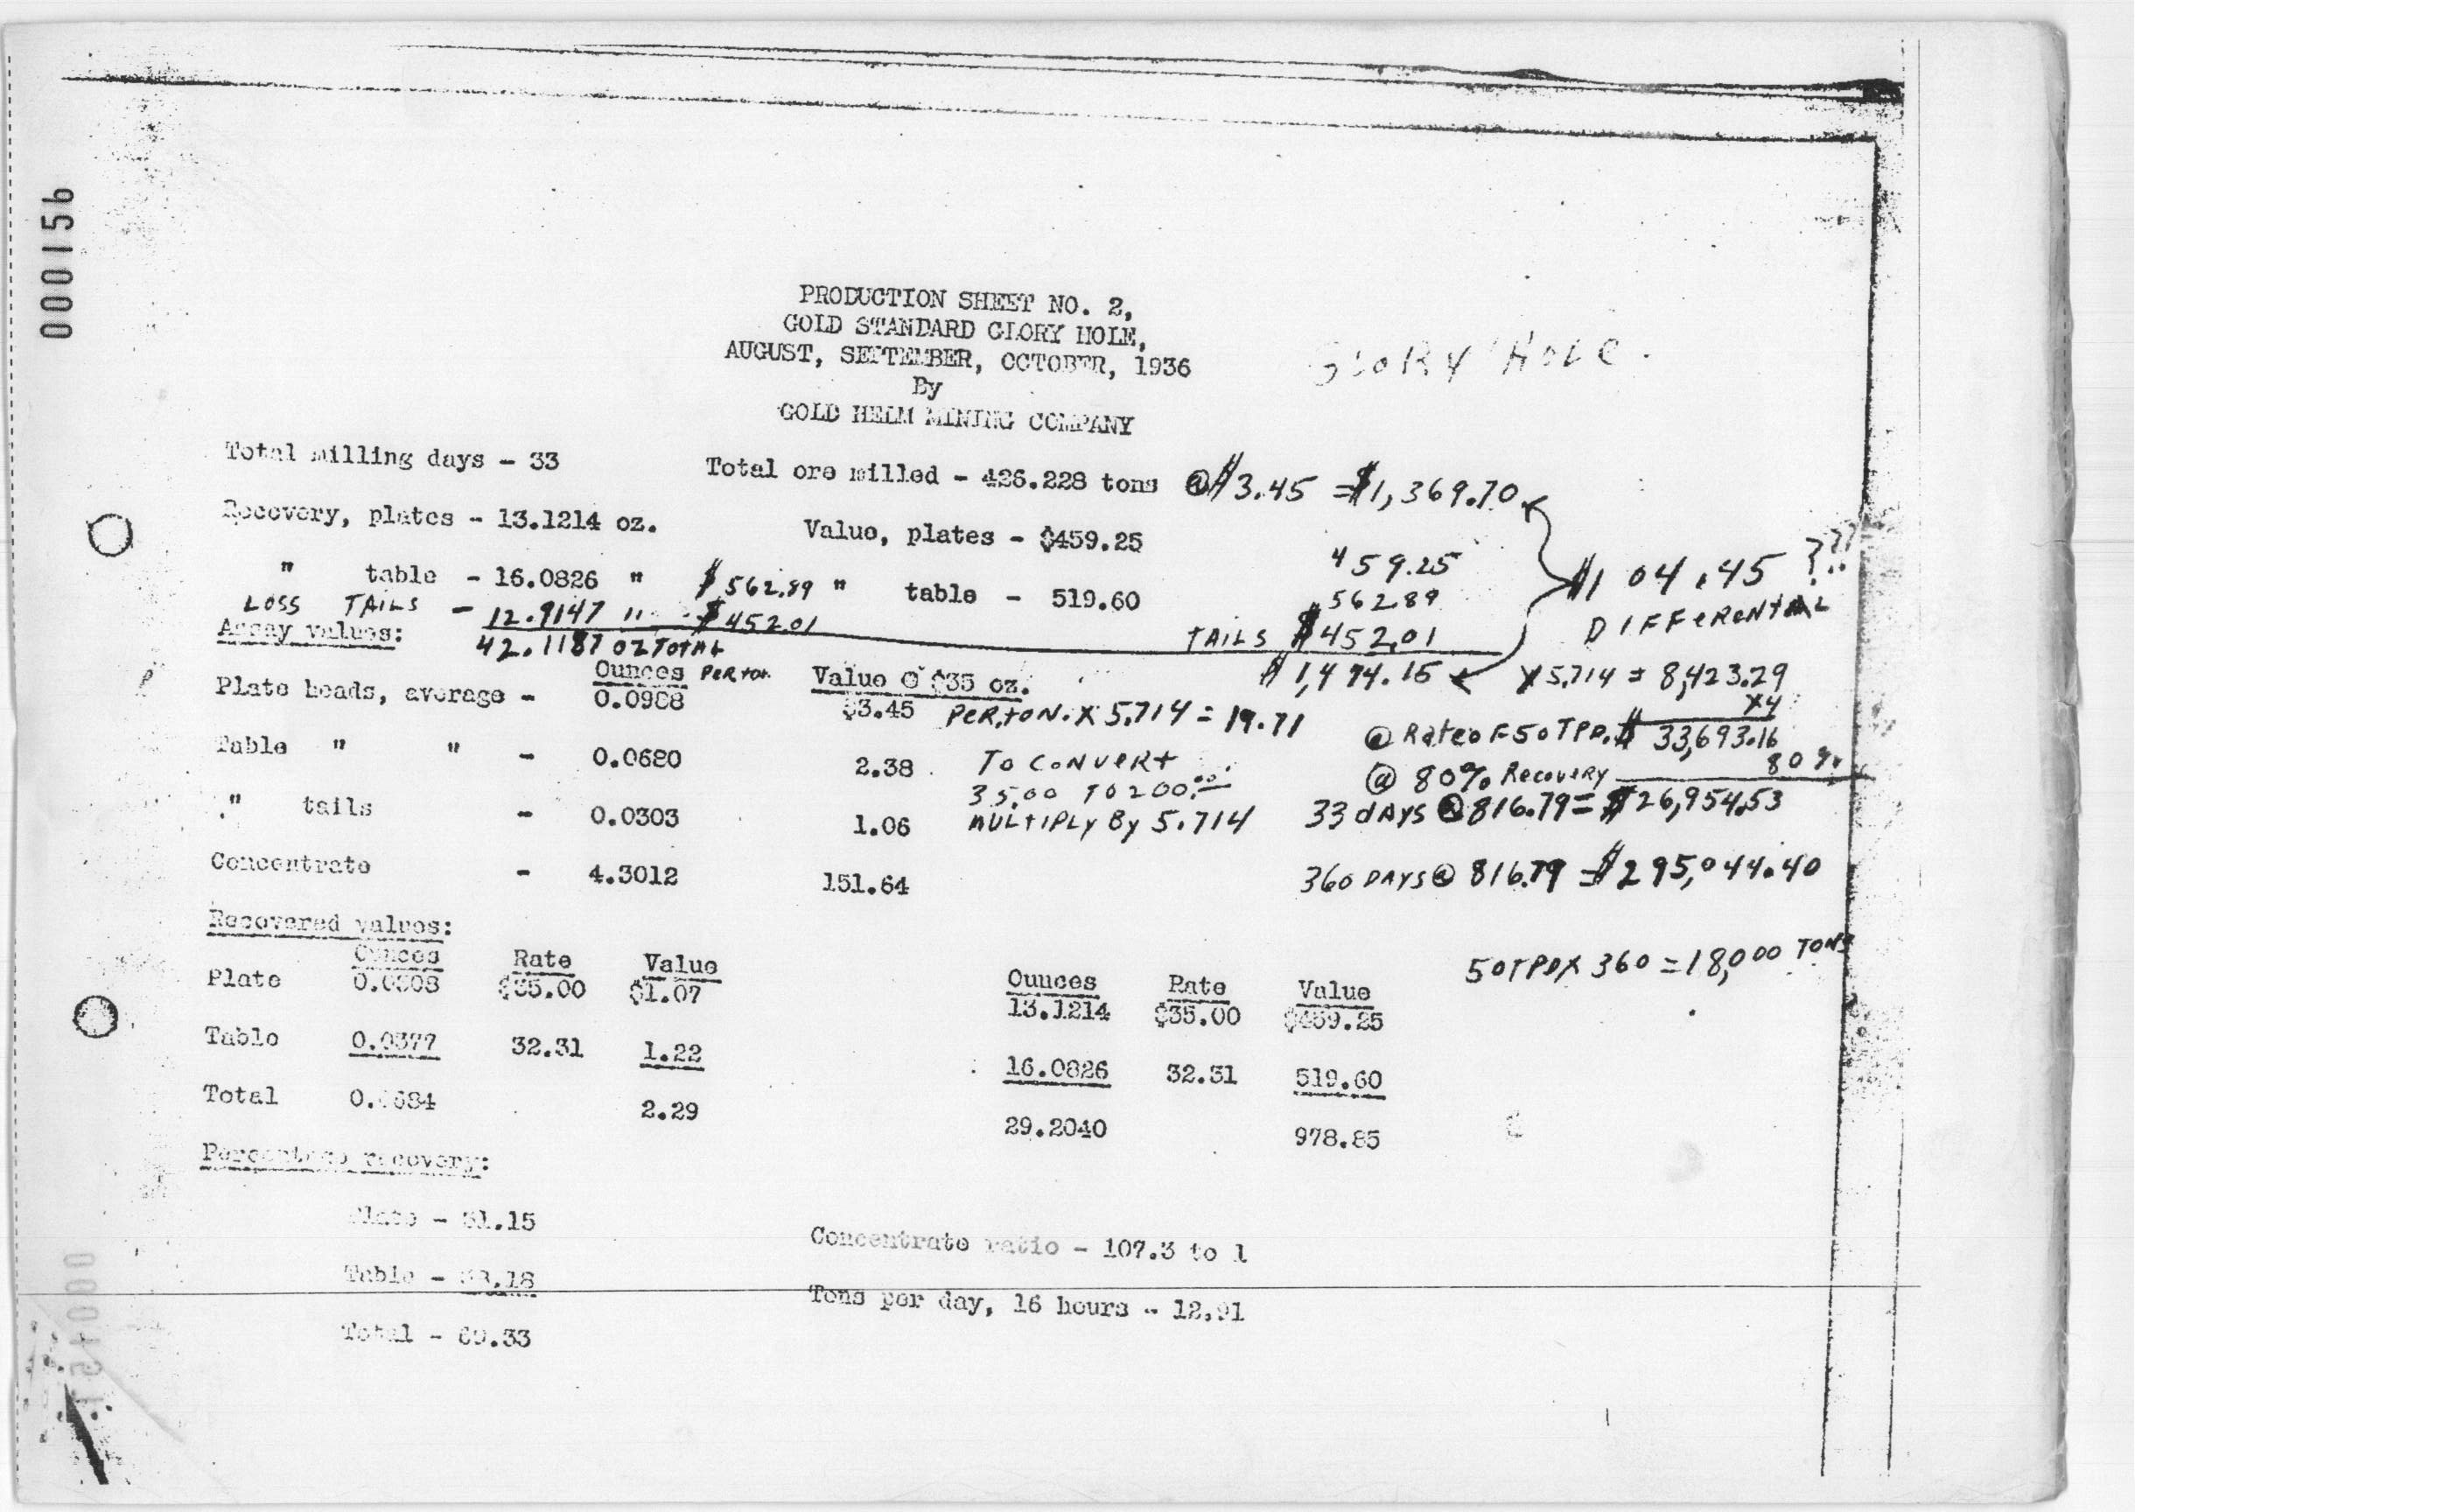 000156
PRODUCTION SHEET NO. 2,
GOLD STANDARD GLORY HOLE,
AUGUST, SEPTEMBER, OCTOBER, 1936
By
GOLD HELM MINING COMPANY
GLORY HOLE.
Total milling days - 33 Total ore milled - 426.228 tons @ $3.45 = $1,369.70
Recovery, plates - 13.1214 oz. Value, plates - $459.25
459.25 $104.45 ???
" table - 16.0826 " $562.89 " table - 519.60
562.89 DIFFERENTIAL
LOSS TAILS - 12.9147 " - $452.01
TAILS $452.01
Assay values: 42.1187 OZ TOTAL
$1,474.15 X 5.714 = 8,423.29
Ounces PER TON Value @ $35 oz.
Plate heads, average - 0.0988 $3.45 PER TON. X 5.714 = 19.71
X4
@ Rate OF 50 TPD. $33,693.16
Table " " - 0.0680 2.38 TO CONVERT
35.00 TO 200.00
MULTIPLY By 5.714
@ 80% Recovery 80%
" tails - 0.0303 1.06
33 dAYS @ 816.79 = $26,954.53
Concentrate - 4.3012 151.64
360 DAYS @ 816.79 = $295,044.40
Recovered values:
50 TPD X 360 = 18,000 TONS
Ounces Rate Value Ounces Rate Value
Plate $35.00 $1.07 13.1214 $35.00 $459.25
Table 0.0377 32.31 1.22 16.0826 32.31 519.60
Total 0.0684 2.29 29.2040 978.85
Percentage recovery:
Plate - 31.15 Concentrate ratio - 107.3 to 1
Table - 38.18 Tons per day, 16 hours - 12.91
Total - 69.33